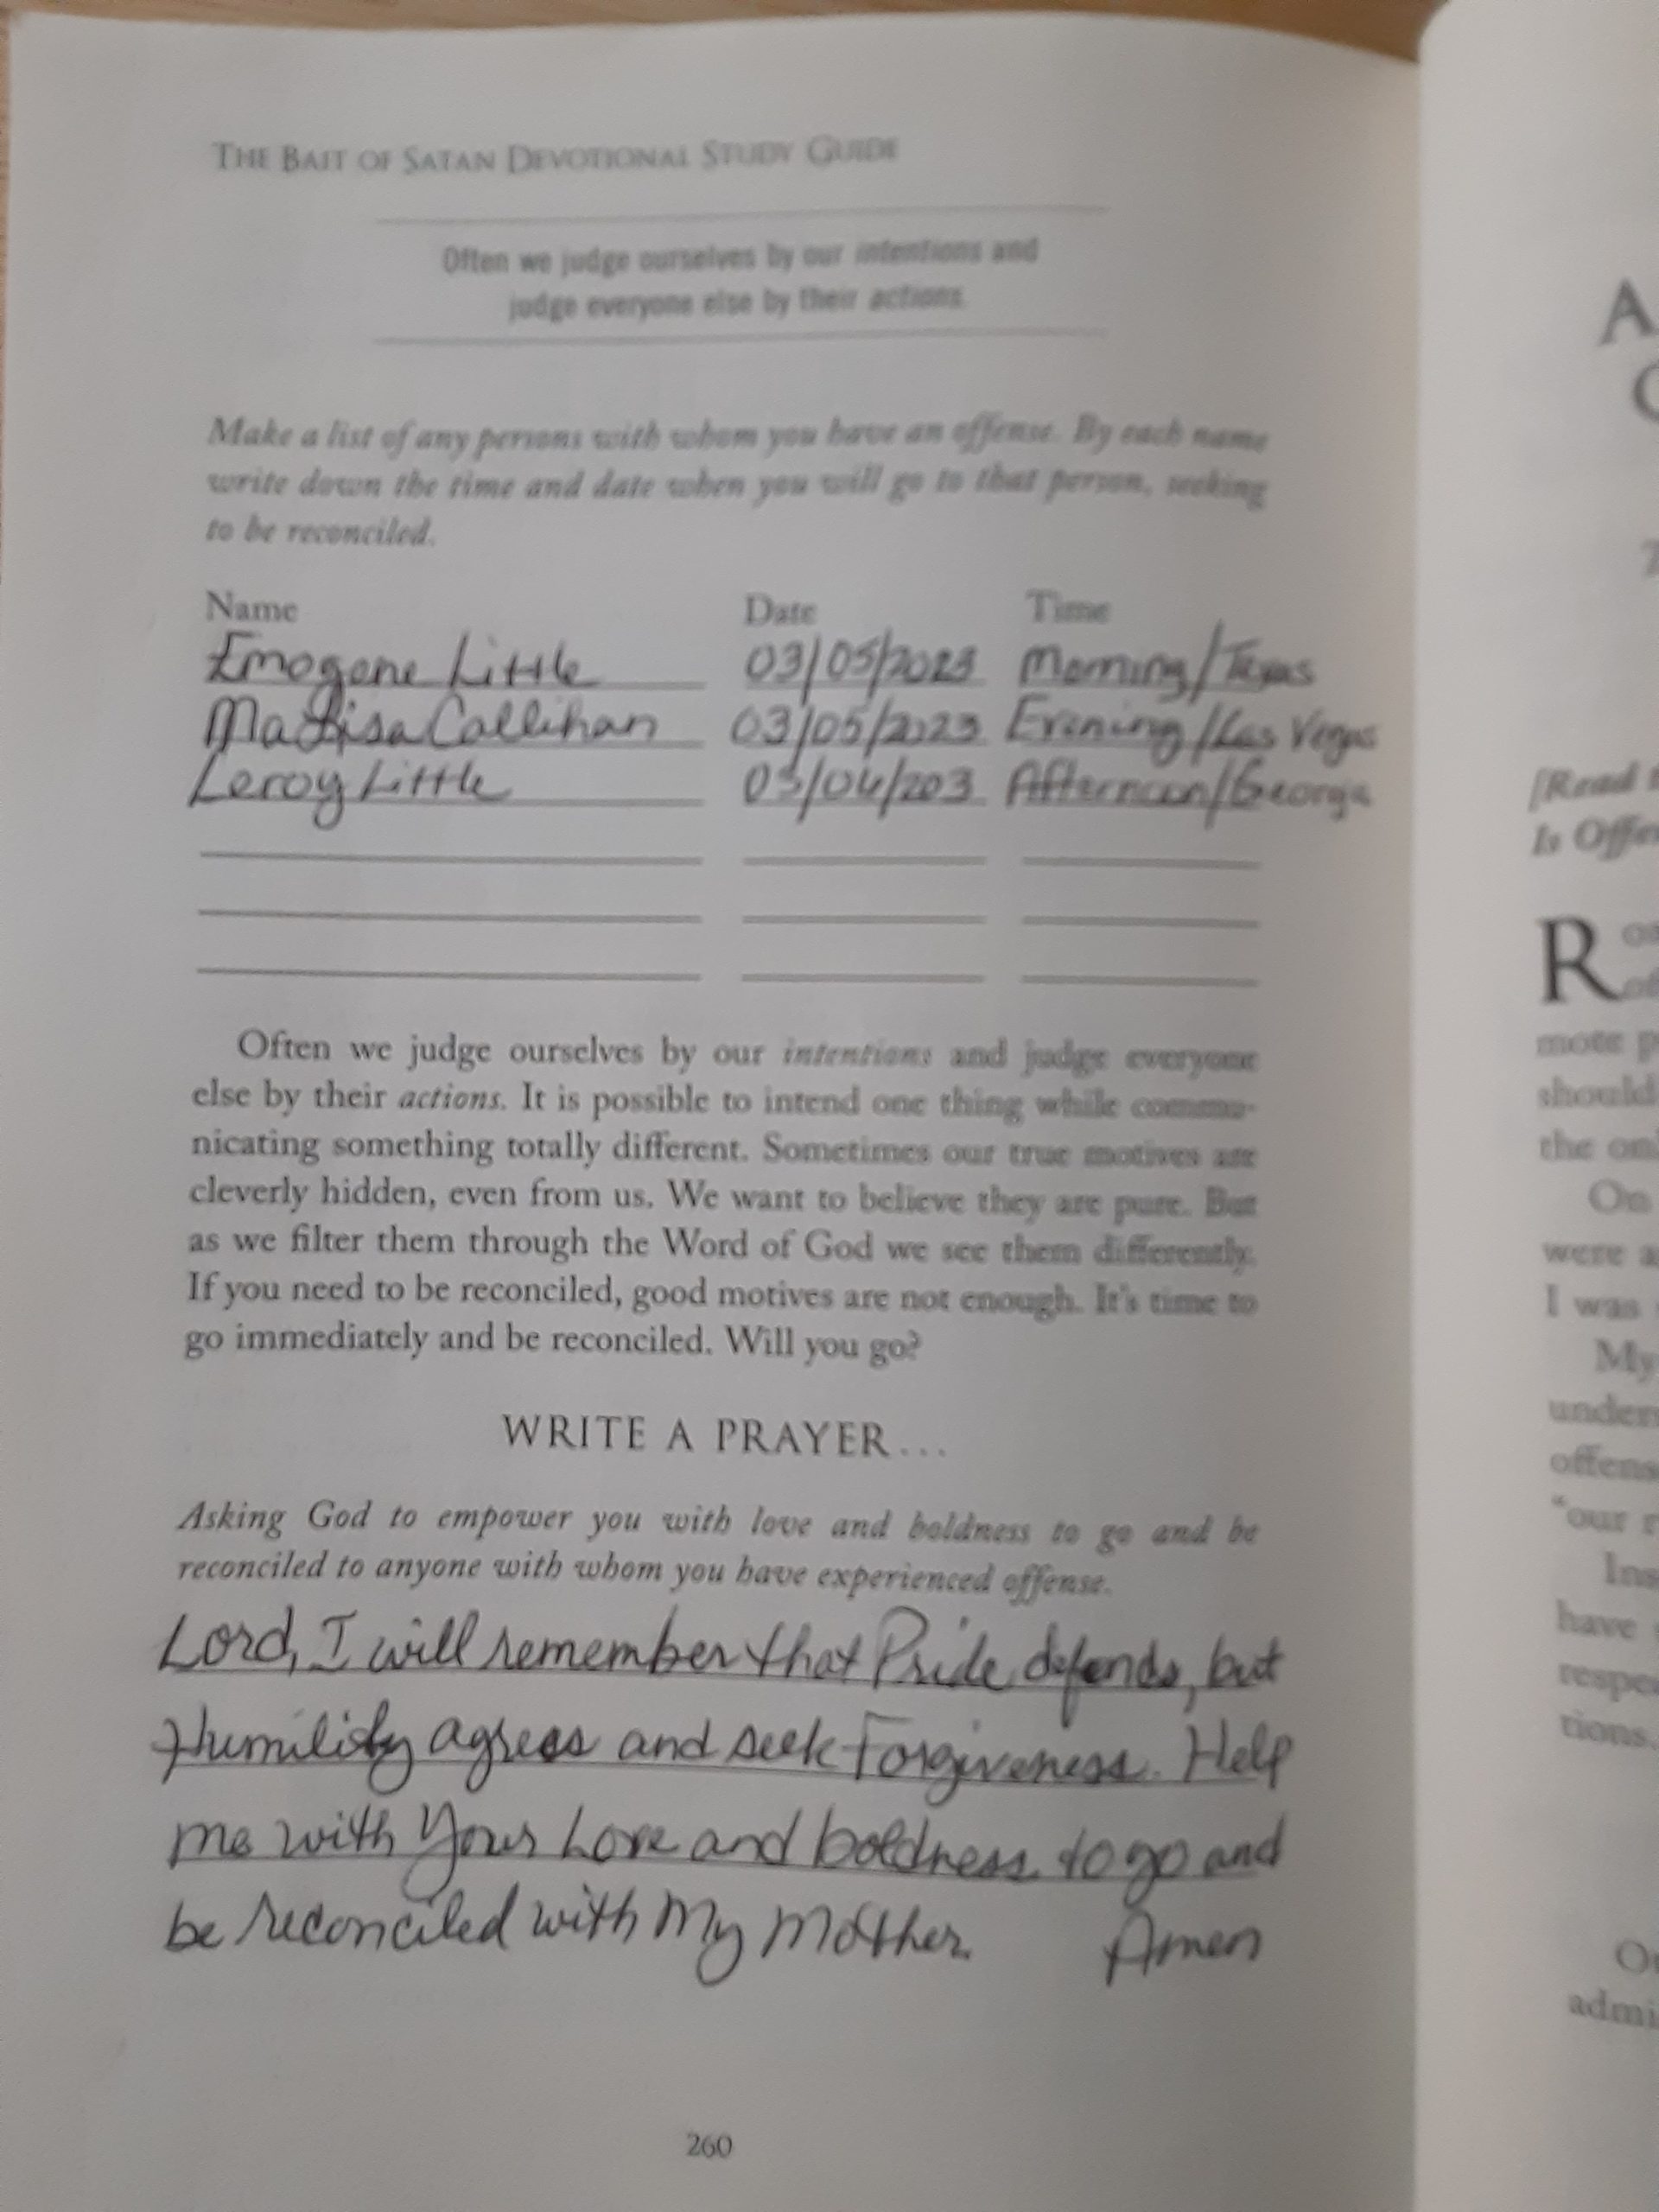 THE BAIT OF SATAN DEVOTIONAL STUDY GUIDE
Often we judge ourselves by our intentions and
judge everyone else by their actions.
Make a list of any persons with whom you have an offense. By each name
write down the time and date when you will go to that person, seeking
to be reconciled.
Name Date Time
Emogene Little 03/05/2023 Morning/Texas
MaLisa Callihan 03/05/2023 Evening/Las Vegas
Leroy Little 03/06/203 Afternoon/Georgia
Often we judge ourselves by our intentions and judge everyone
else by their actions. It is possible to intend one thing while commu-
nicating something totally different. Sometimes our true motives are
cleverly hidden, even from us. We want to believe they are pure. But
as we filter them through the Word of God we see them differently.
If you need to be reconciled, good motives are not enough. It's time to
go immediately and be reconciled. Will you go?
WRITE A PRAYER...
Asking God to empower you with love and boldness to go and be
reconciled to anyone with whom you have experienced offense.
Lord, I will remember that Pride defends, but
Humility agrees and seek Forgiveness. Help
me with Your Love and boldness to go and
be reconciled with My Mother. Amen
260
A
[Read
Is
R
more
should
the
On
were
I was
My
"our
have
tions.